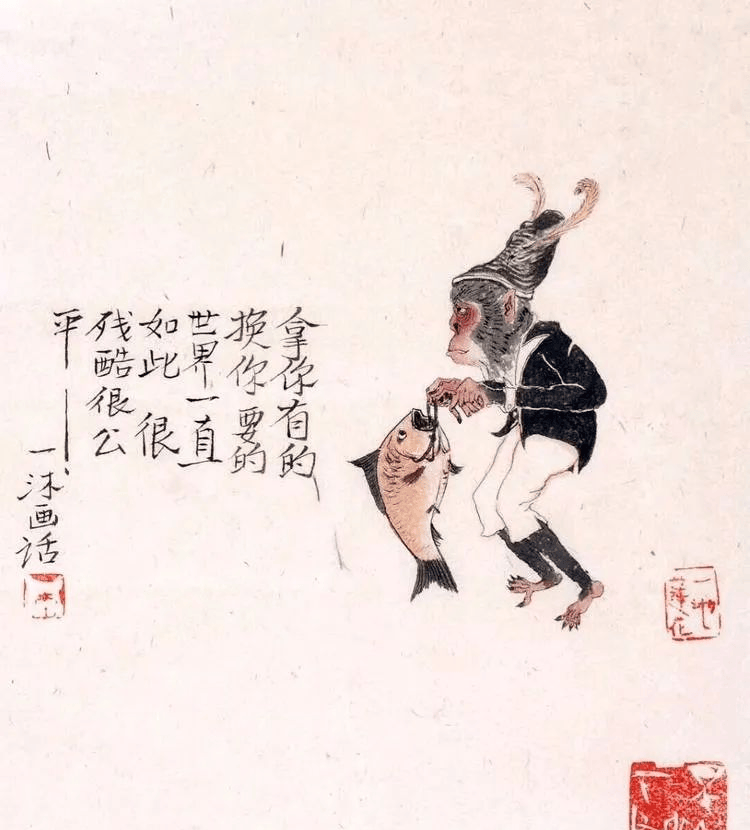 拿你有的
换你要的
世界一直
如此 很
残酷很公
平——
一沐画话